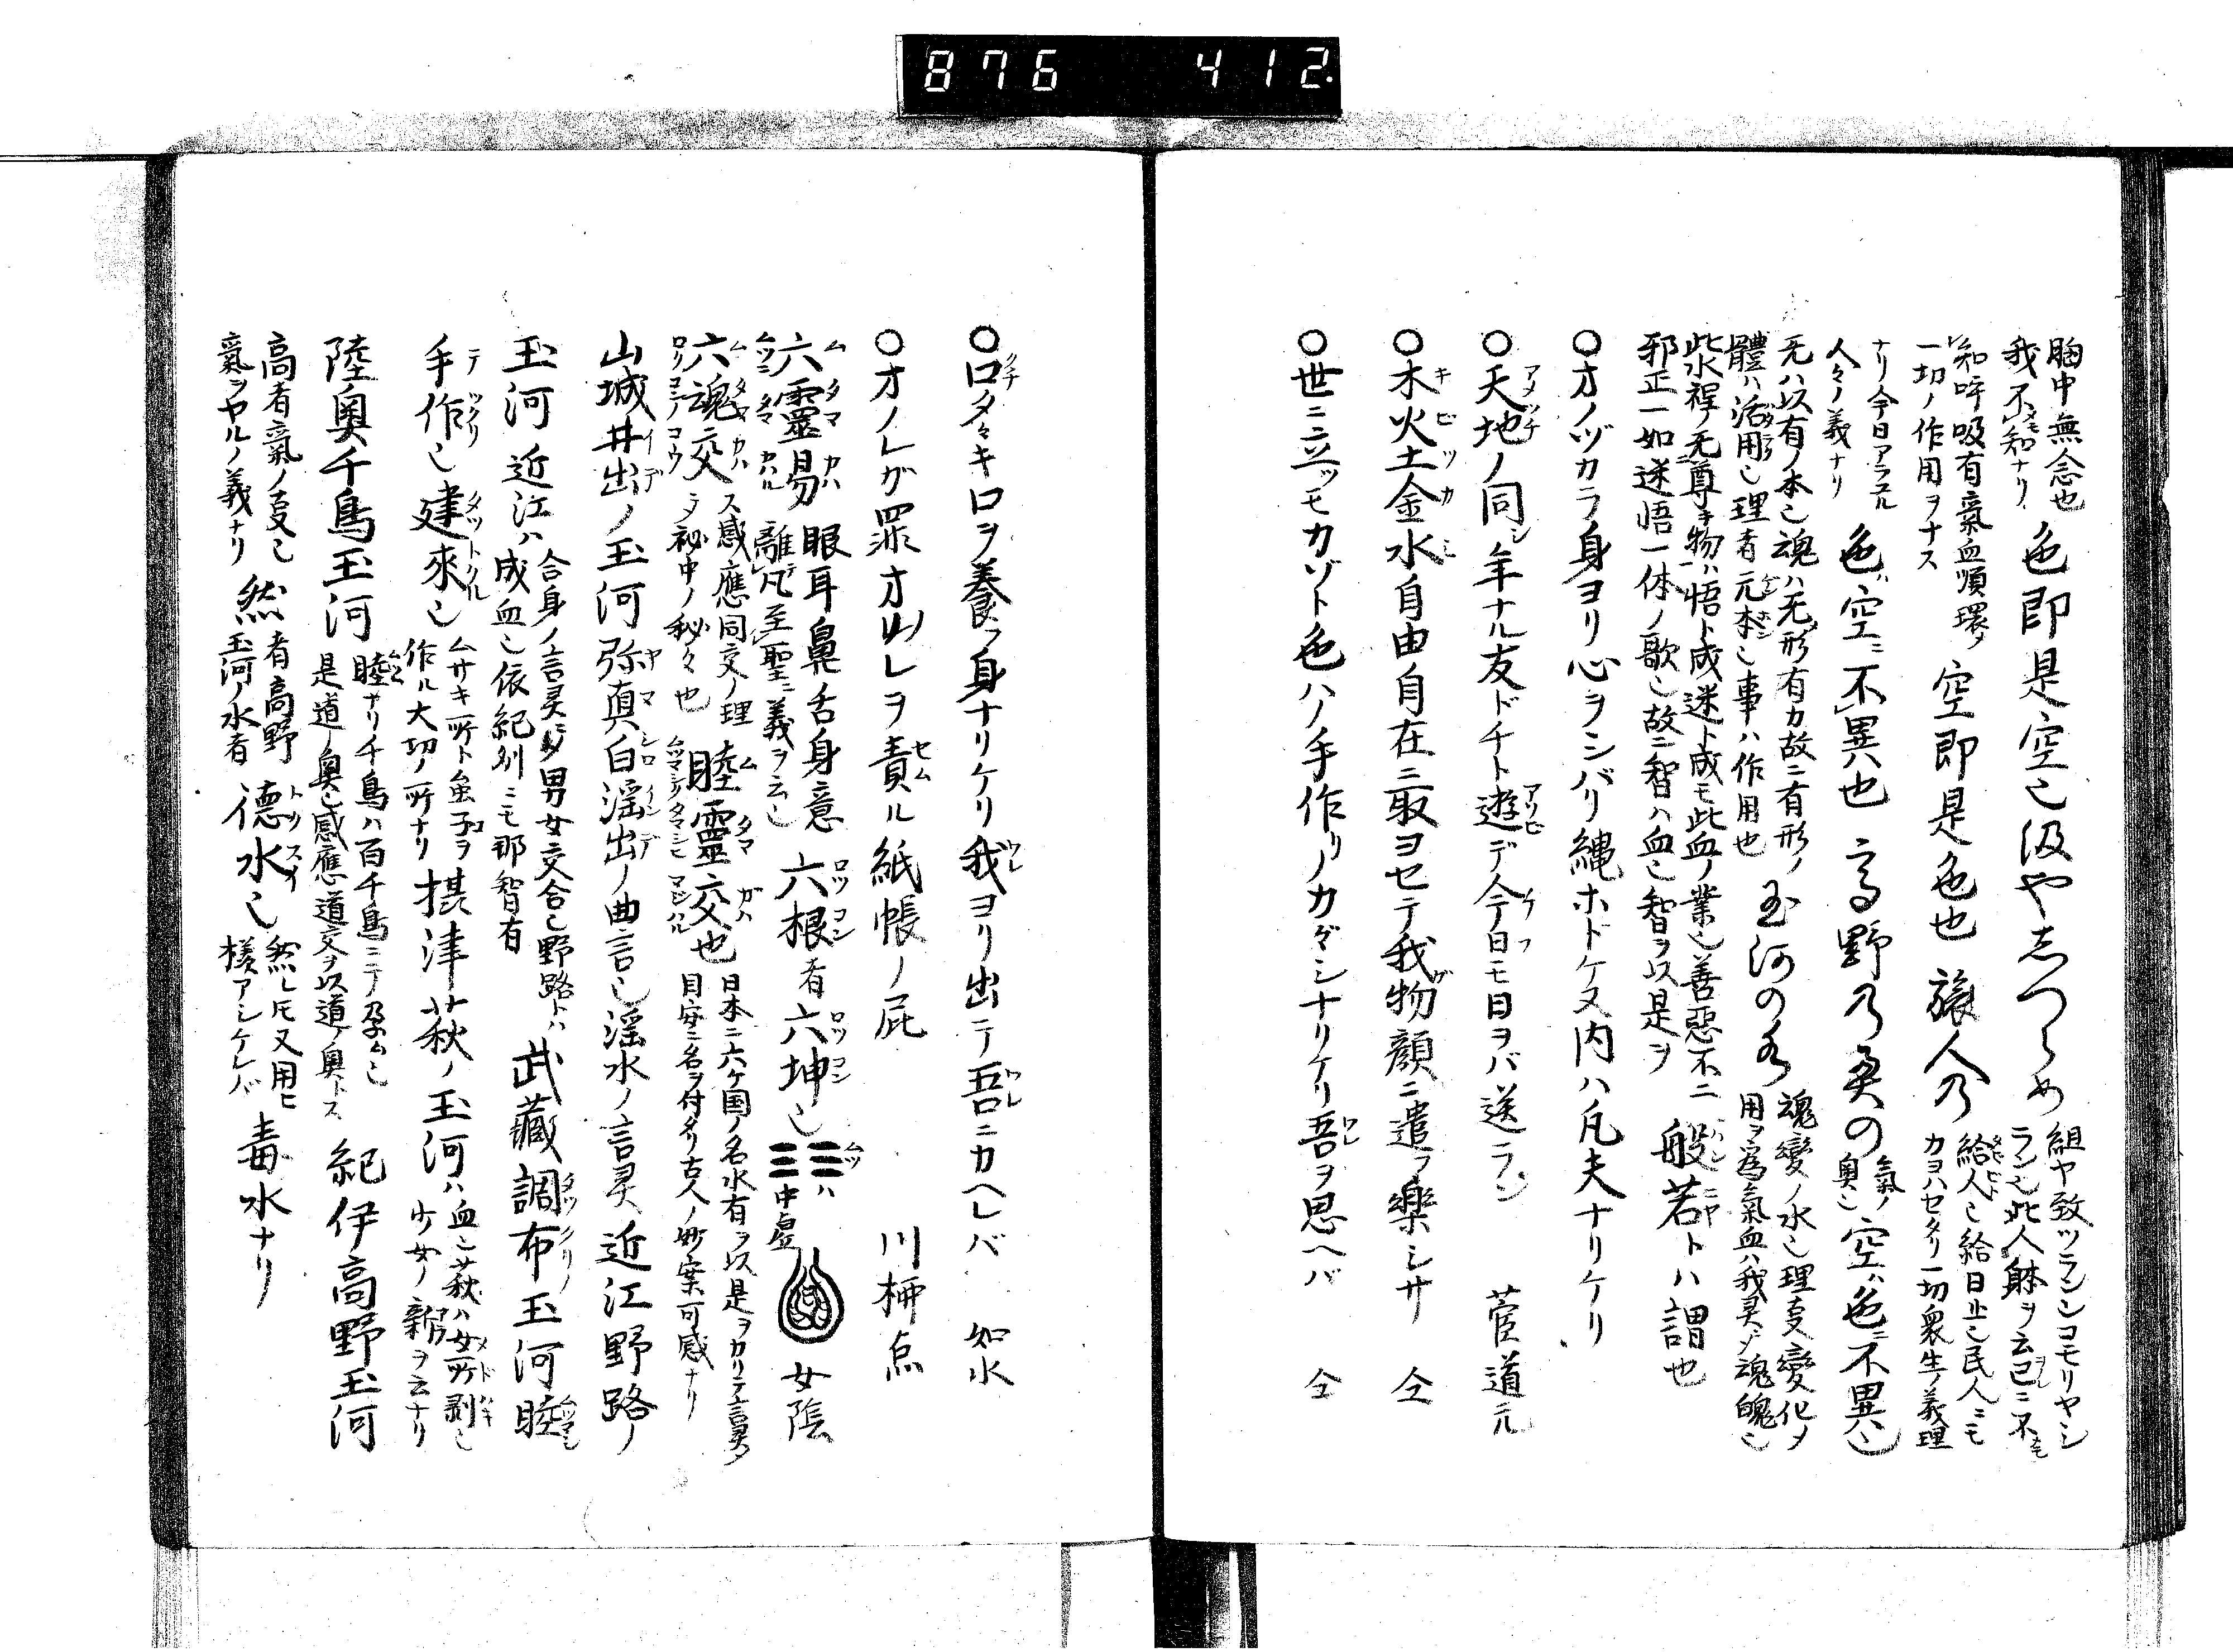 876 412
胸中無念也
我不知ナリ
色即是空也汲やしつらめ
組ヤ致ツランシコモリヤシ
ランシ此人躰ヲ云已ニ不
知呼吸有氣血順環ノ
一切ノ作用ヲナス
空即是色也 旅人乃
給人也給日止也民人ニモ
カヨハセタリ一切衆生ノ義理
ナリ今日アラユル
人々ノ義ナリ
色ハ空ニ不異也 高野乃奥の
氣ノ
奥也
空ハ色ニ不異也
无ハ以有ノ本也魂ハ无形有カ故ニ有形ノ
體ハ活用也理者元本也事ハ作用也
玉河の水
魂變ノ水也理支變化メ
用ヲ為氣血ハ我灵ゾ魂魄也
此水程ノ无尊キ物ハ悟ト成迷ト成モ此血ノ業也善惡不二
邪正一如迷悟一体ノ歌也故ニ智ハ血也智ヲ以是ヲ
般若トハ謂也
○オノヅカラ身ヨリ心ヲシバリ縄ホドケヌ内ハ凡夫ナリケリ
○天地ノ同シ年ナル友ドチト遊デ今日モ日ヲバ送ラン 菅道元
○木火土金水自由自在ニ取ヨセテ我物顔ニ遣フ樂シサ 仝
○世ニ立ツモカゾト色ハノ手作リノカダシナリケリ吾ヲ思ヘバ 仝
○口タヽキ口ヲ養フ身ナリケリ我ヨリ出テ吾ニカヘレバ 如水
○オノレガ罪オノレヲ責ル紙帳ノ屁 川柳点
六靈易
眼耳鼻舌身意
離凡至聖ニ義ヲ云也
六根者六坤也
ハ
中虚
女陰
六魂交
ス感應同交ノ理
ヲ秘中ノ秘々也
睦靈交也
日本ニ六ケ国ノ名水有ヲ以是ヲカリテ言灵ノ
目安ニ名ヲ付タリ古人ノ妙案可感ナリ
山城井出ノ玉河弥真白淫出ノ曲言也淫水ノ言灵 近江野路ノ
玉河 近江ハ
合身ノ言灵ニメ男女交合也野路トハ
成血也依紀別ニモ那智有
武藏調布玉河睦
手作也建來也
ムサキ所ト虫子ヲ
作ル大切ノ所ナリ
摂津萩ノ玉河ハ
血也萩ハ女所剥也
少女ノ新ヲ云ナリ
陸奥千鳥玉河
睦ナリ千鳥ハ百千鳥ニテ孕ム也
是道ノ奥也感應道交ヲ以道ノ奥トス
紀伊高野玉河
高者氣ノ支也
氣ヲヤルノ義ナリ
然
者高野
玉河ノ水者
德水也
然レ𪜈又用ヒ
様アシケレバ
毒水ナリ